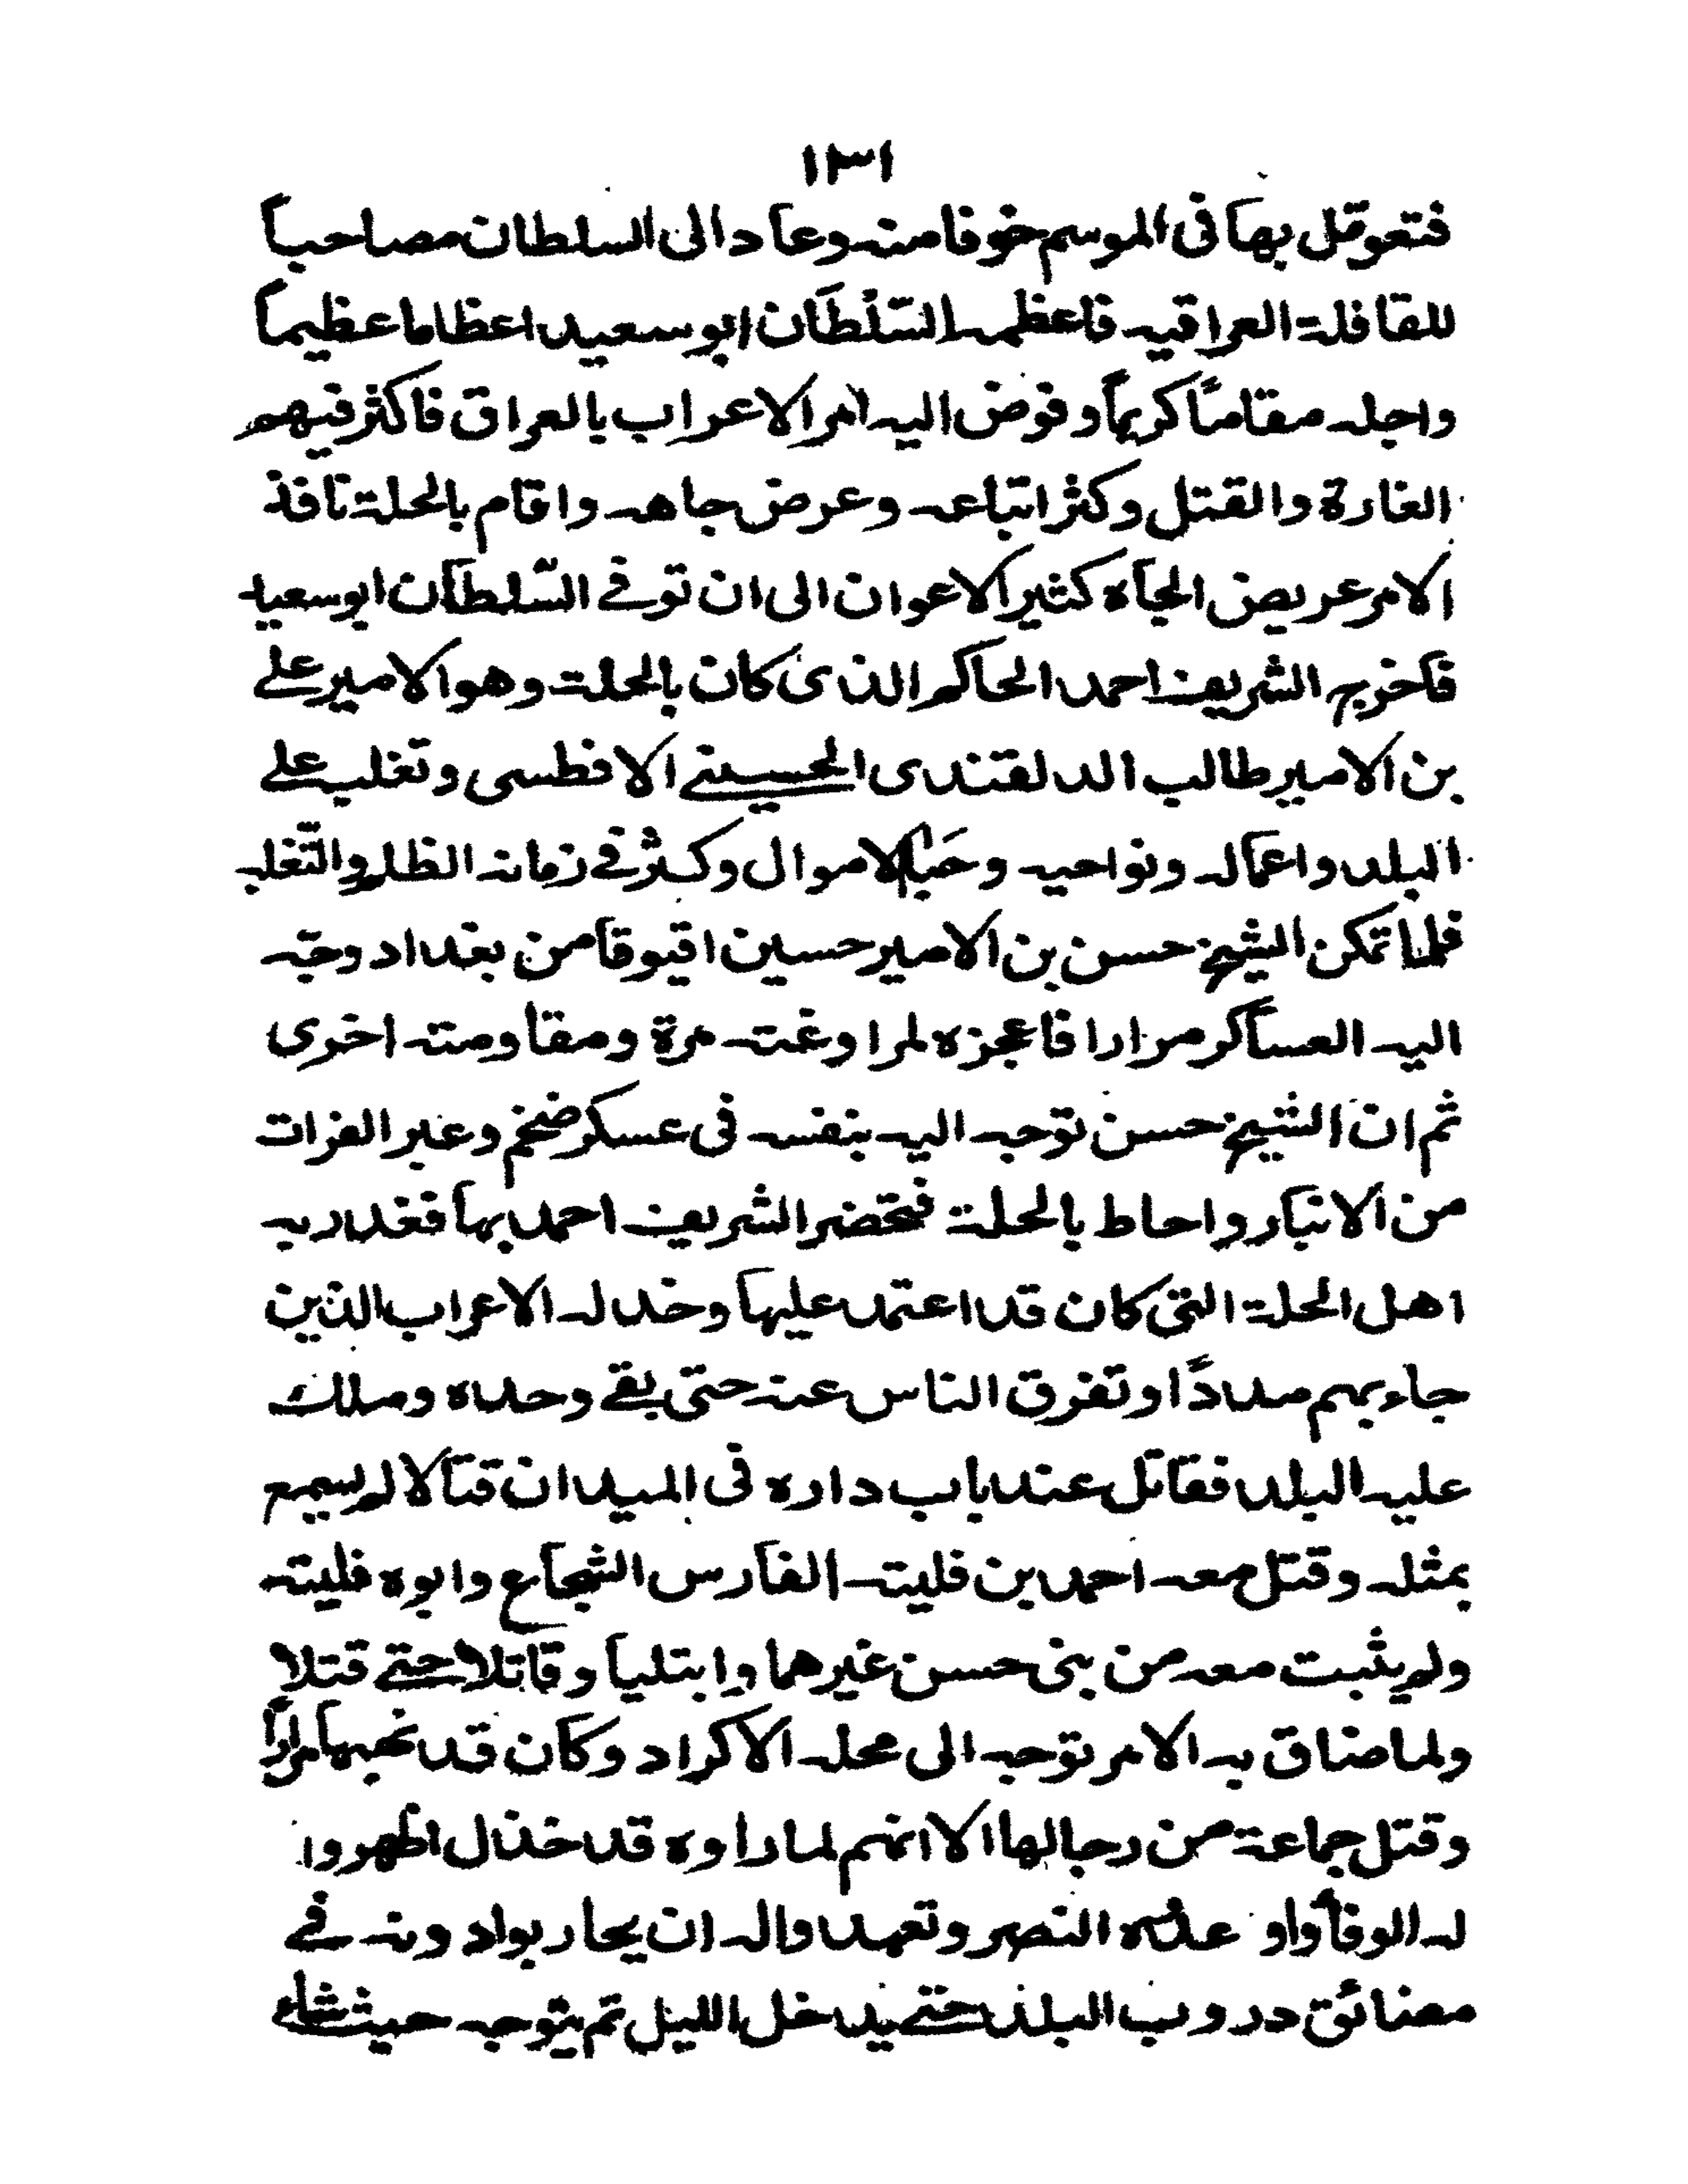 ١٣١
فتعومل بها فى الموسم خوفا منه وعاد الى السلطان مصاحباً
للقافلة العراقيه فاعظمه السّلطان ابو سعيد اعظاما عظيماً
واجله مقاماً كريماً وفوض اليه امر الاعراب بالعراق فاكثر فيهم
الغارة والقتل وكثر اتباعه وعرض جاهه واقام بالحلة نافذ
الامر عريض الجاه كثير الاعوان الى ان توفے السّلطان ابو سعيد
فاخرج الشريف احمد الحاكم الذى كان بالحلة وهو الامير علے
بن الامير طالب الدلقندى الحسينے الافطسى وتغلب علے
البلد واعماله ونواحيه وجبا الاموال وكثر فے زمانه الظلم والتّغلب
فلما تمكن الشيخ حسن بن الامير حسين اقبوقا من بغداد وجّه
اليه العساكر مرارا فاعجزه لمراوغته مرة ومقاومته اخرى
ثم ان الشيخ حسن توجه اليه بنفسه فى عسكر ضخم وعبر الفرات
من الانبار واحاط بالحلة فتحضر الشريف احمد بها فغدر به
اهل الحلة التى كان قد اعتمد عليها وخدله الاعراب الذين
جاء بهم مدداً وتفرق الناس عنه حتى بقے وحده وملك
عليه البلد فقاتل عند باب داره فى الميدان قتالا لم يسمع
بمثله وقتل معه احمد بن فليته الفارس الشجاع وابوه فليته
ولم يثبت معه من بنى حسن غيرهما وابتليا وقاتلا حتے قتلا
ولما ضاق به الامر توجه الى محله الاكراد وكان قد نهبها مراراً
وقتل جماعة من رجالها الا انهم لما راوه قد خذل اظهروا
له الوفا واو عدوه النصر وتعهدوا له ان يحاربوا دونه فے
مضائق دروب البلد حتے يدخل الليل ثم يتوجه حيث شاء